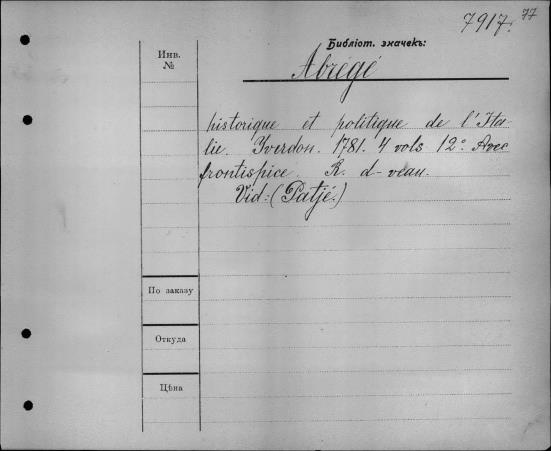 7917. 77
Библіот. значекъ:
Инв.
№
Abrégé
historique et politique de l'Ita-
lie. Yverdon. 1781. 4 vols 12° Avec
frontispice. R. d-veau.
Vid: (Patjé.)
По заказу
Откуда
Цѣна